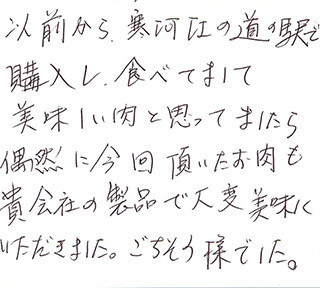 以前から、寒河江の道の駅で
購入し、食べてまして
美味しい肉と思ってましたら
偶然に今回頂いたお肉も
貴会社の製品で大変美味に
いただきました。ごちそう様でした。